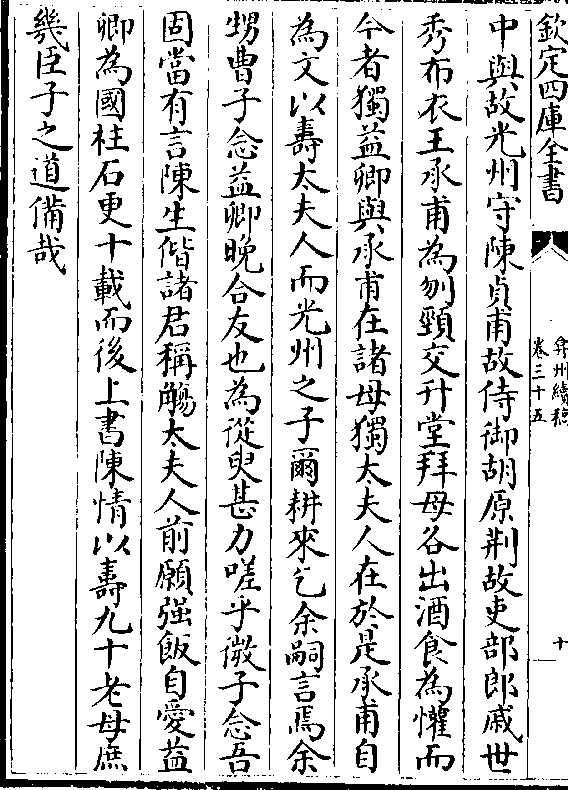 欽定四庫全書
弇州續稿
卷三十五
十
中與故光州守陳貞甫故侍御胡原荆故吏部郎戚世
秀布衣王承甫為刎頸交升堂拜母各出酒食為懽而
今者獨益卿與承甫在諸母獨太夫人在於是承甫自
為文以壽太夫人而光州之子爾耕來乞余嗣言焉余
甥曹子念益卿晚合友也為從臾甚力嗟乎微子念吾
固當有言陳生偕諸君稱觴太夫人前願强飯自愛益
卿為國柱石更十載而後上書陳情以壽九十老母庶
幾臣子之道備哉